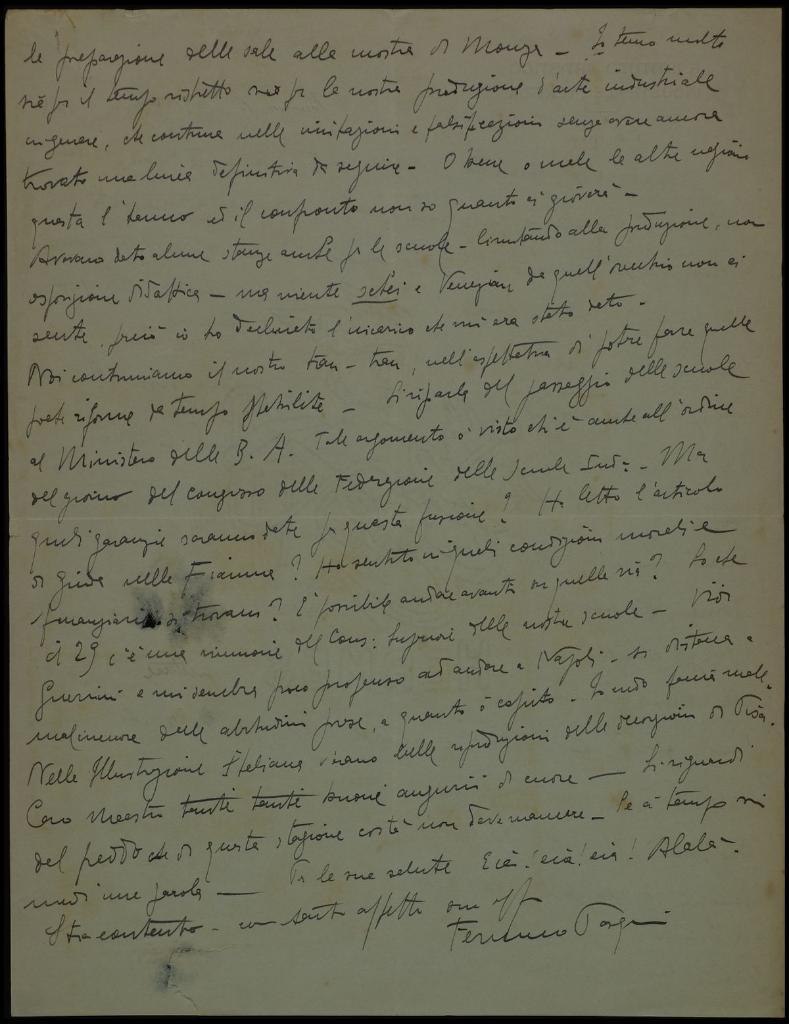 le preparazione delle sale alla mostra di Monza – Io temo molto
sia per il tempo ristretto sia per la nostra produzione d'arte industriale
in genere, che continua nelle imitazioni e falsificazioni senza avere ancora
trovato una linea definitiva da seguire – O bene o male le altre nazioni
questa l'hanno ed il confronto non so quanto ci gioverà –
Avevano dato alcune stanze anche per le scuole – limitando alla produzione, non
esposizione didattica – ma niente e Veneziani da quell'orecchio non ci
sente, perciò io ho declinato l'incarico che mi era stato dato –
Noi continuiamo il nostro tran – tran, nell'aspettativa di poter fare quelle
poche riforme da tempo – Si riparla del passaggio delle scuole
al Ministero delle B. A. Tale argomento ò visto ch'è anche all'ordine
del giorno del congresso della Federazione delle Scuole Ind: – Ma
quali garanzie saranno date per questa fusione? Ha letto l'articolo
di nelle Fiamme? Ha sentito in quali condizioni morali e
finanziarie si trovano? È possibile andare avanti su quella via? So che
il 29 c'è una riunione del Cons: Superiore delle nostre scuole – Vidi
Guerrini e mi sembra poco propenso ad andare a Napoli – si distacca a
malincuore dalle abitudini prese, a quanto ò capito –
Nelle Illustrazione Italiana vi sono delle riproduzioni delle decorazioni di Pisa.
Caro Maestro tanti tanti buoni auguri di cuore — Si riguardi
del freddo che di questa stagione costà non deve mancare – Se à tempo mi
mandi una parola — Per la sua salute Eià! eià! eià! Alalà.
Stia contento – con tanto affetto suo aff